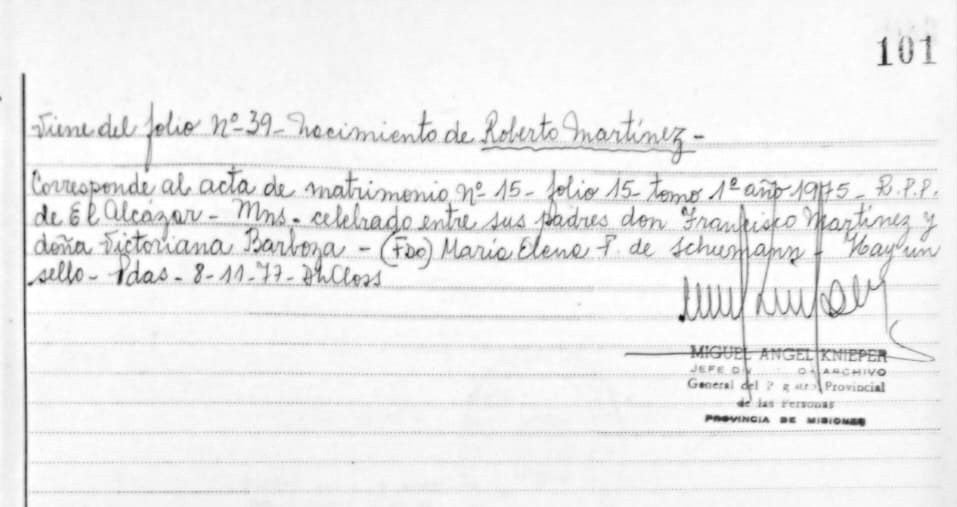 101
Viene del folio Nº 39 - Nacimiento de Roberto Martínez -
Corresponde al acta de matrimonio Nº 15 - folio 15 - tomo 1º año 1975 - R.P.P.
de El Alcázar - Mns. celebrado entre sus padres don Francisco Martínez y
doña Victoriana Barboza - (FDO) María Elena P. de Schumann - Hay un
sello - Pdas - 8-11-77 -
MIGUEL ANGEL KNIEPER
JEFE ARCHIVO
General del Provincial
de las Personas
PROVINCIA DE MISIONES